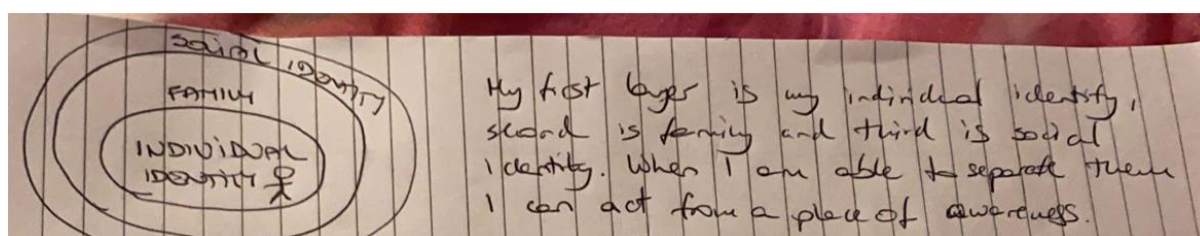 SOCIAL IDENTITY
FAMILY
INDIVIDUAL
IDENTITY
My first layer is my individual identity,
second is family and third is social
identity. When I am able to separate them
I can act from a place of awareness.